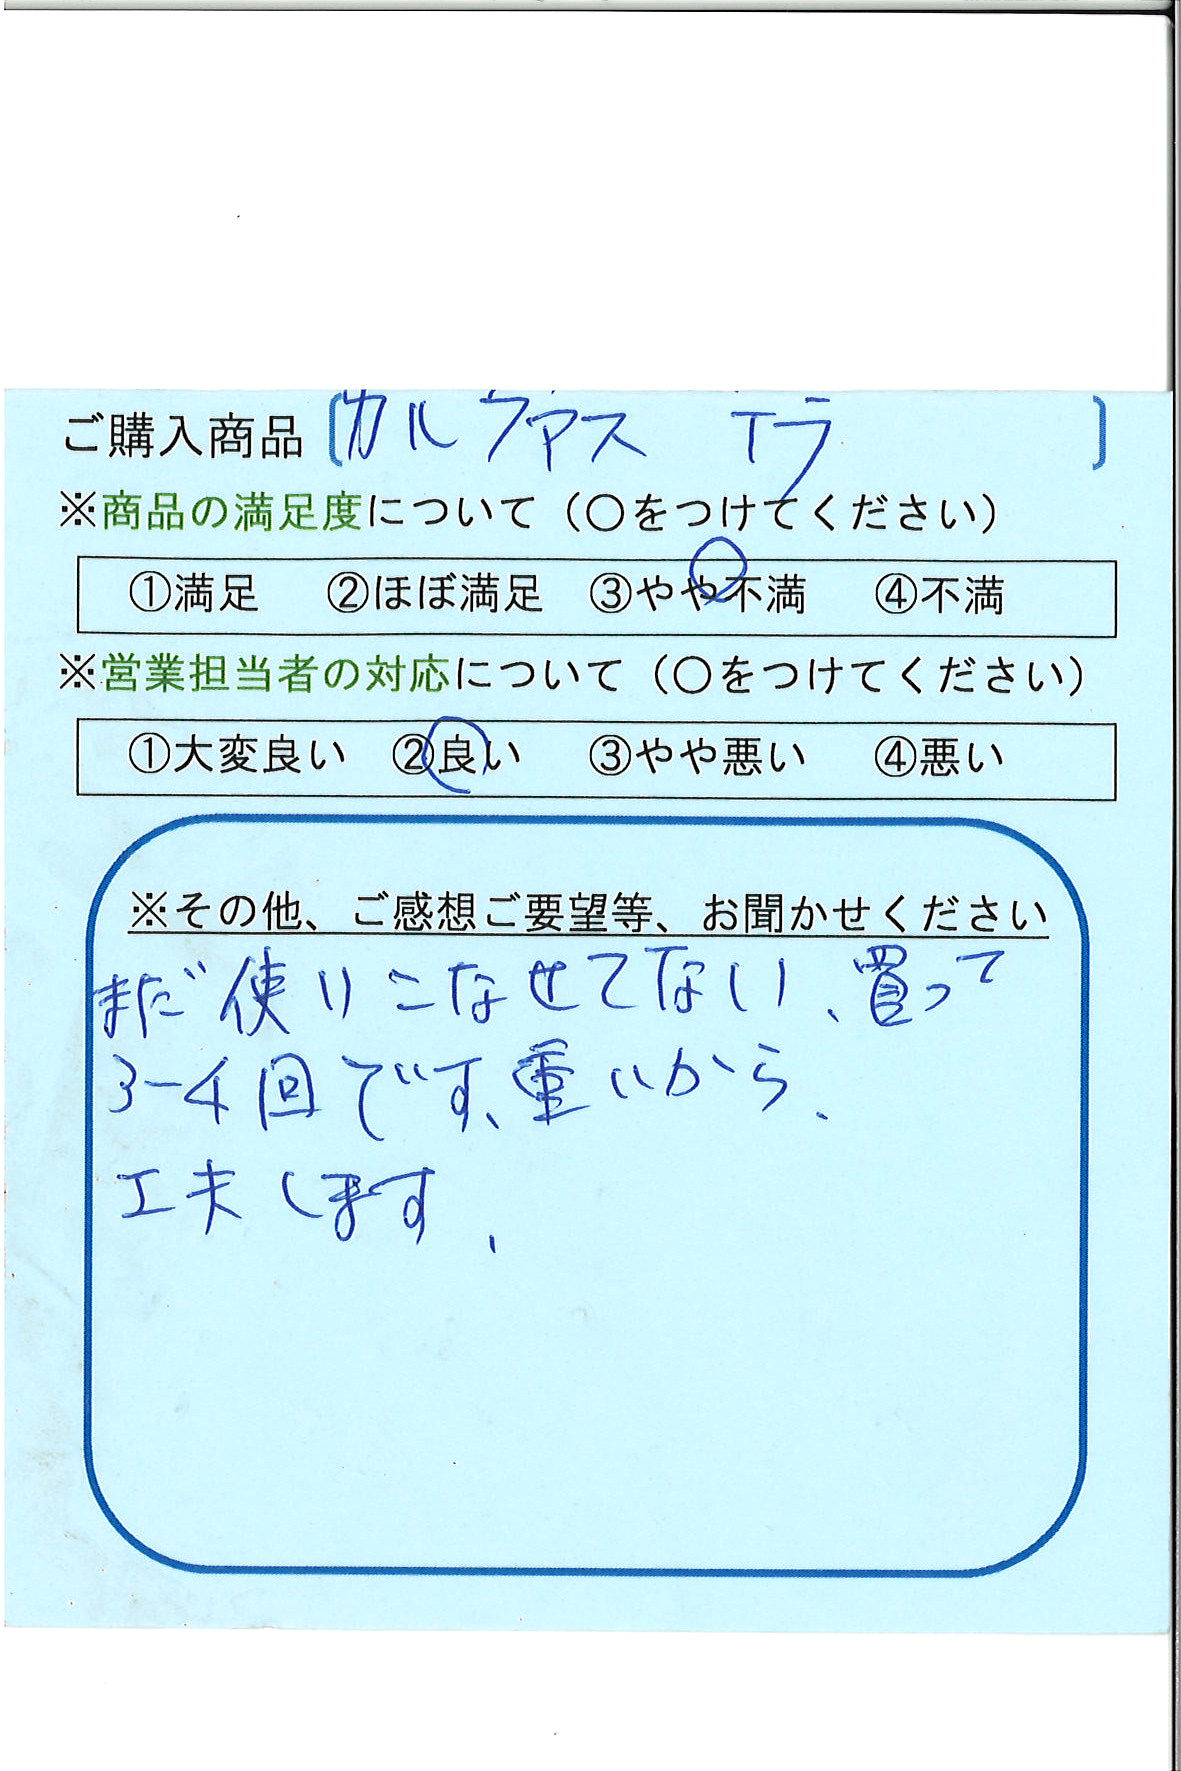 ご購入商品［カルファス エラ］
※商品の満足度について（〇をつけてください）
①満足 ②ほぼ満足 ③やや不満 ④不満
※営業担当者の対応について（〇をつけてください）
①大変良い ②良い ③やや悪い ④悪い
※その他、ご感想ご要望等、お聞かせください
まだ使いこなせてない、買って
3-4回です、重いから、
工夫します、